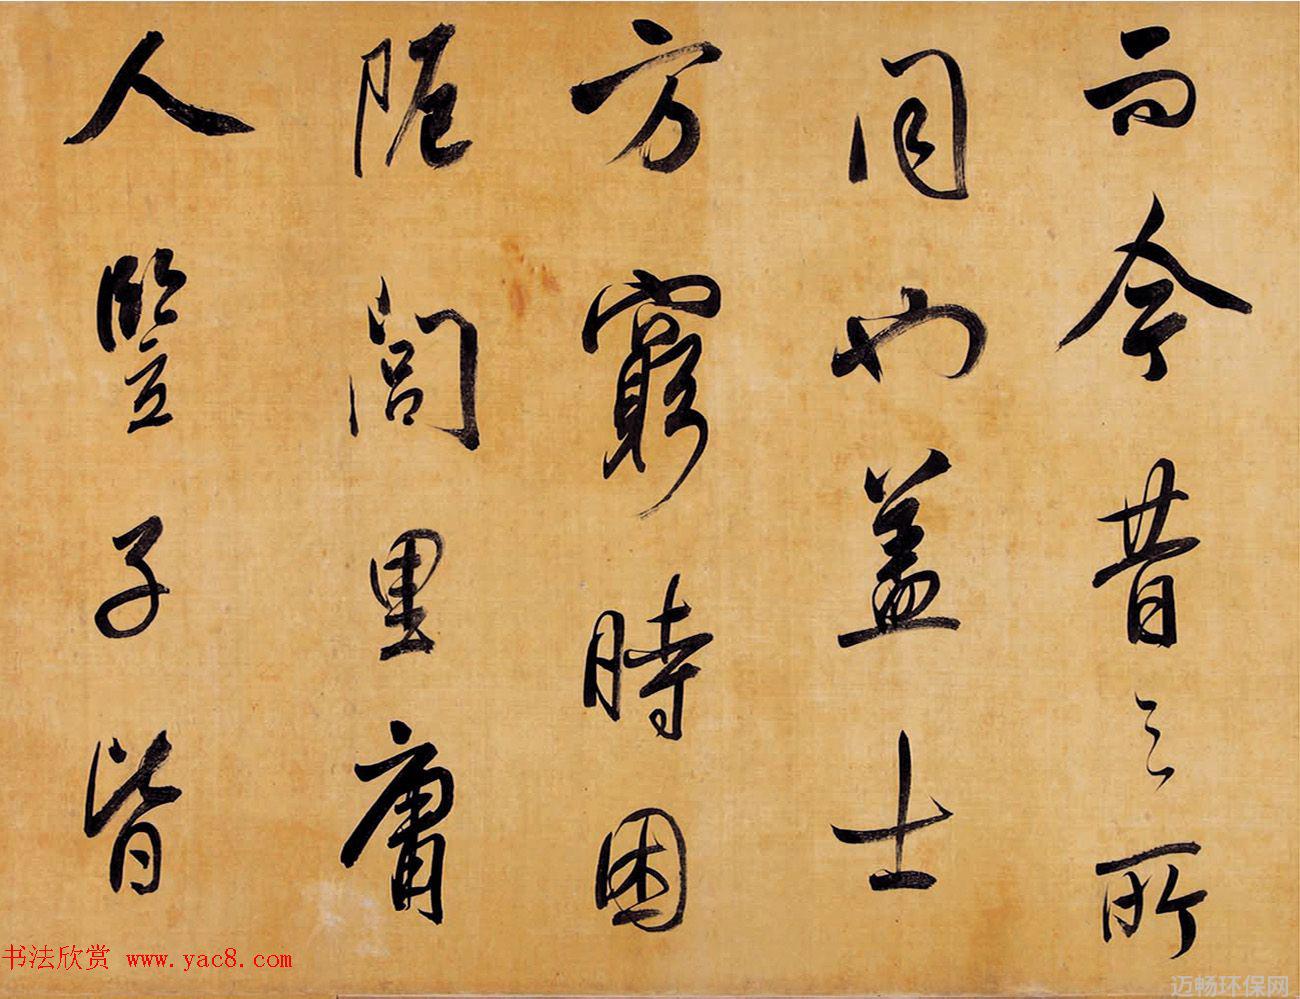 而今昔之所
同也盖士
方窮時困
阨閭里庸
人竪子皆
书法欣赏 www.yac8.com
迈畅环保网